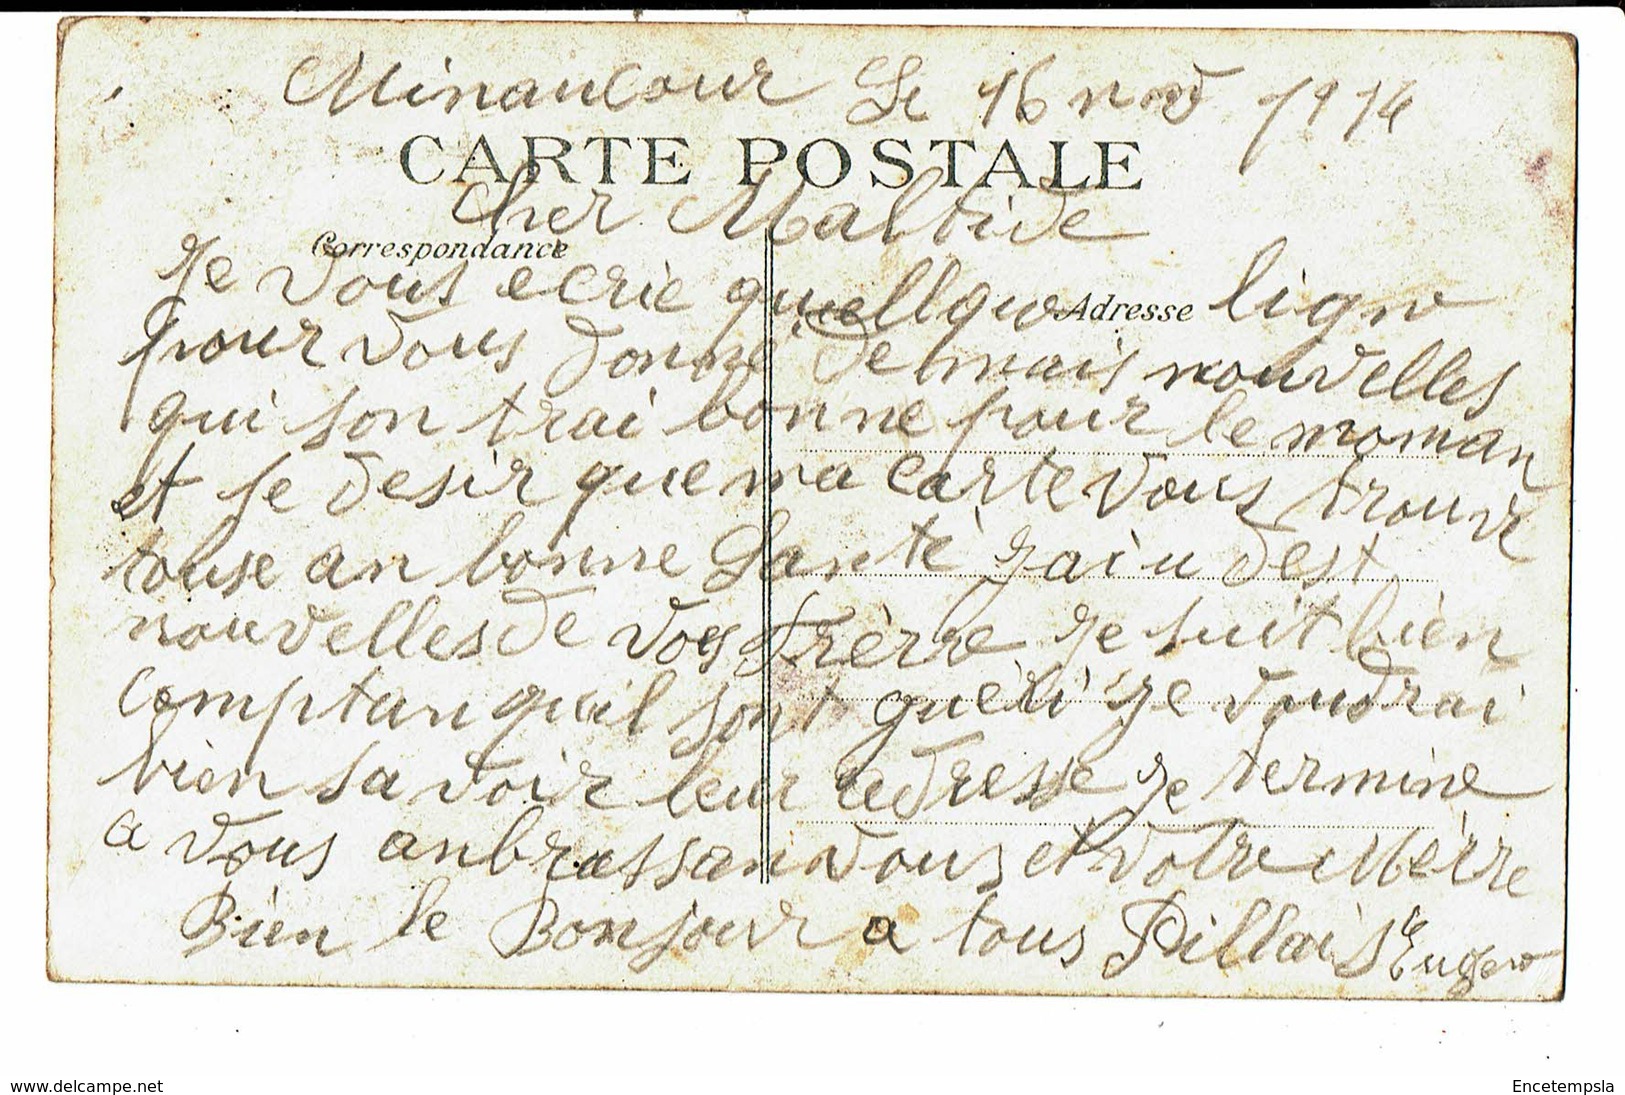 Minaucour Le 16 nov 1914
CARTE POSTALE
Cher Maltide
Correspondance
Je vous ecrie quellque lign
Adresse
pour vous donné de mais nouvelles
qui son trai bonne pour le moman
et je desir que ma carte vous trouve
touse an bonne Santé jai u dest
nouvelles de vos frèrre je suit bien
comptan qu'il sont guéri je voudrai
bien savoir leur adresse je termine
a vous anbrassan vous et votre Mèrre
Bien le Bonjour a tous Pillais Eugen
www.delcampe.net
Encetempsla